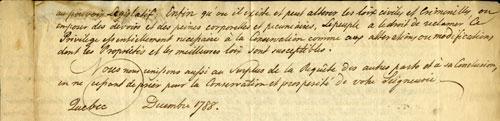 au pouvoir Legislatif. Enfin qu'on il existe et peut altérer les loix civiles et Criminelles ou
imposer des devoirs et des peines corporelles et pecuniaires, le peuple a le droit de reclamer ce
Privilège essentiellement necessaire à la Conservation comme aux alterations ou modifications
dont les Proprietés et les meilleures loix sont susceptibles.
Nous nous unissons aussi au Surplus de la Requête des autres parts et à sa Conclusion,
en ne cessant de prier pour la Conservation et prosperité de votre Seigneurie.
Quebec Decembre 1788.